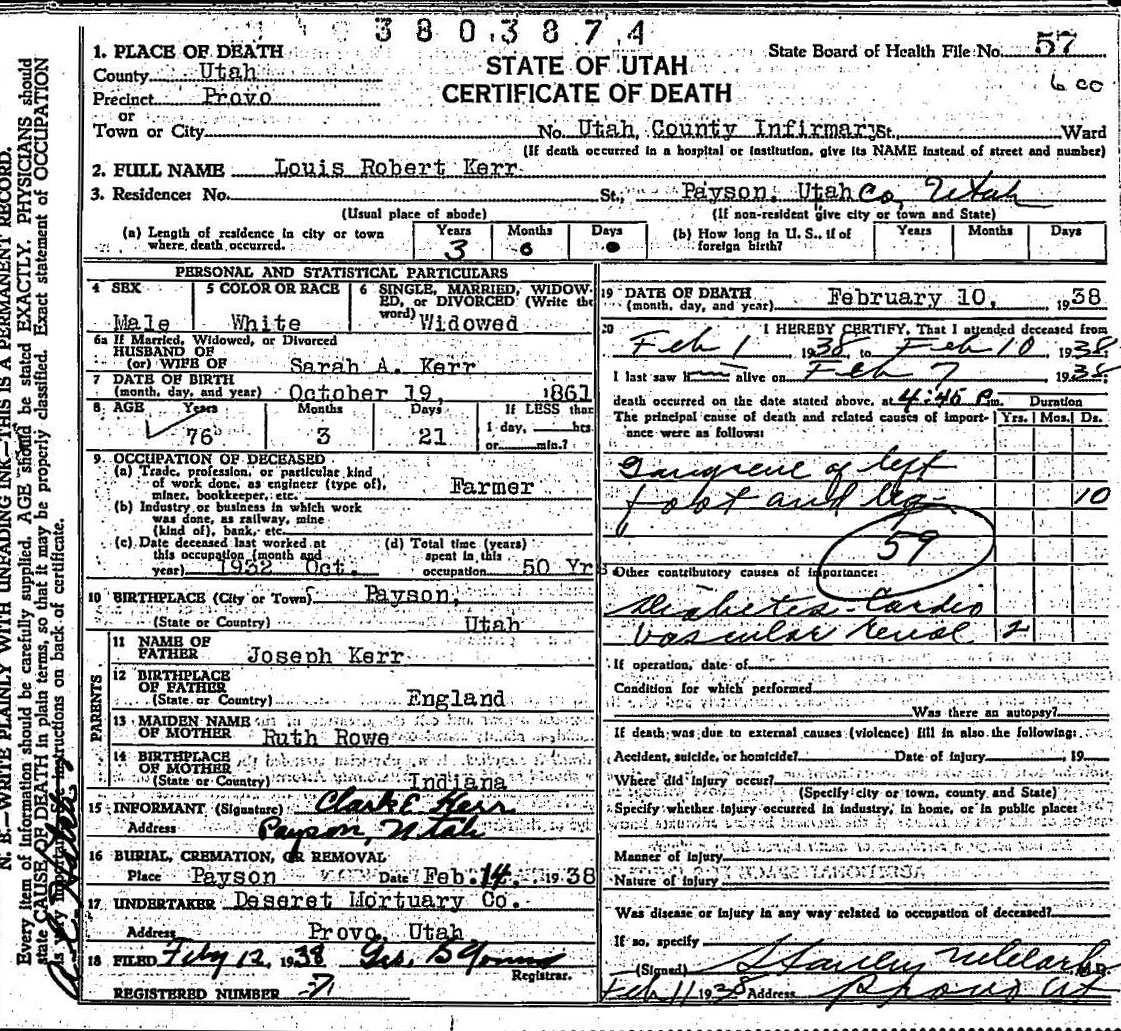 3803874
1. PLACE OF DEATH
State Board of Health File No. 57
County Utah
STATE OF UTAH
6 00
Precinct Provo
CERTIFICATE OF DEATH
or
Town or City No. Utah County Infirmary St., Ward
(If death occurred in a hospital or institution, give its NAME instead of street and number)
2. FULL NAME Louis Robert Kerr
3. Residence: No. St., Payson, Utah Co, Utah
(Usual place of abode) (If non-resident give city or town and State)
(a) Length of residence in city or town where death occurred. Years 3 Months 0 Days 0
(b) How long in U. S., if of foreign birth? Years Months Days
PERSONAL AND STATISTICAL PARTICULARS
4 SEX Male
5 COLOR OR RACE White
6 SINGLE, MARRIED, WIDOWED, or DIVORCED (Write the word) Widowed
6a If Married, Widowed, or Divorced
HUSBAND OF
(or) WIFE OF Sarah A. Kerr
7 DATE OF BIRTH
(month, day, and year) October 19, 1861
8 AGE Years 76 Months 3 Days 21
If LESS than 1 day, hrs. or min.?
9 OCCUPATION OF DECEASED
(a) Trade, profession, or particular kind
of work done, as engineer (type of),
miner, bookkeeper, etc. Farmer
(b) Industry or business in which work
was done, as railway, mine
(kind of), bank, etc.
(c) Date deceased last worked at
this occupation (month and
year) 1932 Oct.
(d) Total time (years)
spent in this
occupation 50 Yrs
10 BIRTHPLACE (City or Town) Payson,
(State or Country) Utah
PARENTS
11 NAME OF
FATHER Joseph Kerr
12 BIRTHPLACE
OF FATHER
(State or Country) England
13 MAIDEN NAME
OF MOTHER Ruth Rowe
14 BIRTHPLACE
OF MOTHER
(State or Country) Indiana
15 INFORMANT (Signature) Clark E Kerr
Address Payson, Utah
16 BURIAL, CREMATION, OR REMOVAL
Place Payson Date Feb. 14. 1938
17 UNDERTAKER Deseret Mortuary Co.
Address Provo, Utah
18 FILED Feby 12, 1938 Geo. S Young
Registrar.
REGISTERED NUMBER 57
19 DATE OF DEATH
(month, day, and year) February 10, 1938
20 I HEREBY CERTIFY, That I attended deceased from
Feb 1 1938, to Feb 10 1938
I last saw h alive on Feb 7 1938
death occurred on the date stated above, at 4:45 P.m. Duration
The principal cause of death and related causes of importance were as follows: Yrs. Mos. Ds.
Gangrene of left
foot and leg 10
59
Other contributory causes of importance:
Diabetes - Cardio
Vascular renal 2
If operation, date of
Condition for which performed
Was there an autopsy?
If death was due to external causes (violence) fill in also the following:
Accident, suicide, or homicide? Date of injury , 19
Where did injury occur?
(Specify city or town, county and State)
Specify whether injury occurred in industry, in home, or in public place:
Manner of injury
Nature of injury
Was disease or injury in any way related to occupation of deceased?
If so, specify
(Signed) Stanley M Clark M.D.
Feb 11 1938 Address Provo Ut
N. B.—WRITE PLAINLY WITH UNFADING INK—THIS IS A PERMANENT RECORD.
Every item of information should be carefully supplied. AGE should be stated EXACTLY. PHYSICIANS should
state CAUSE OF DEATH in plain terms, so that it may be properly classified. Exact statement of OCCUPATION
is very important. See instructions on back of certificate.